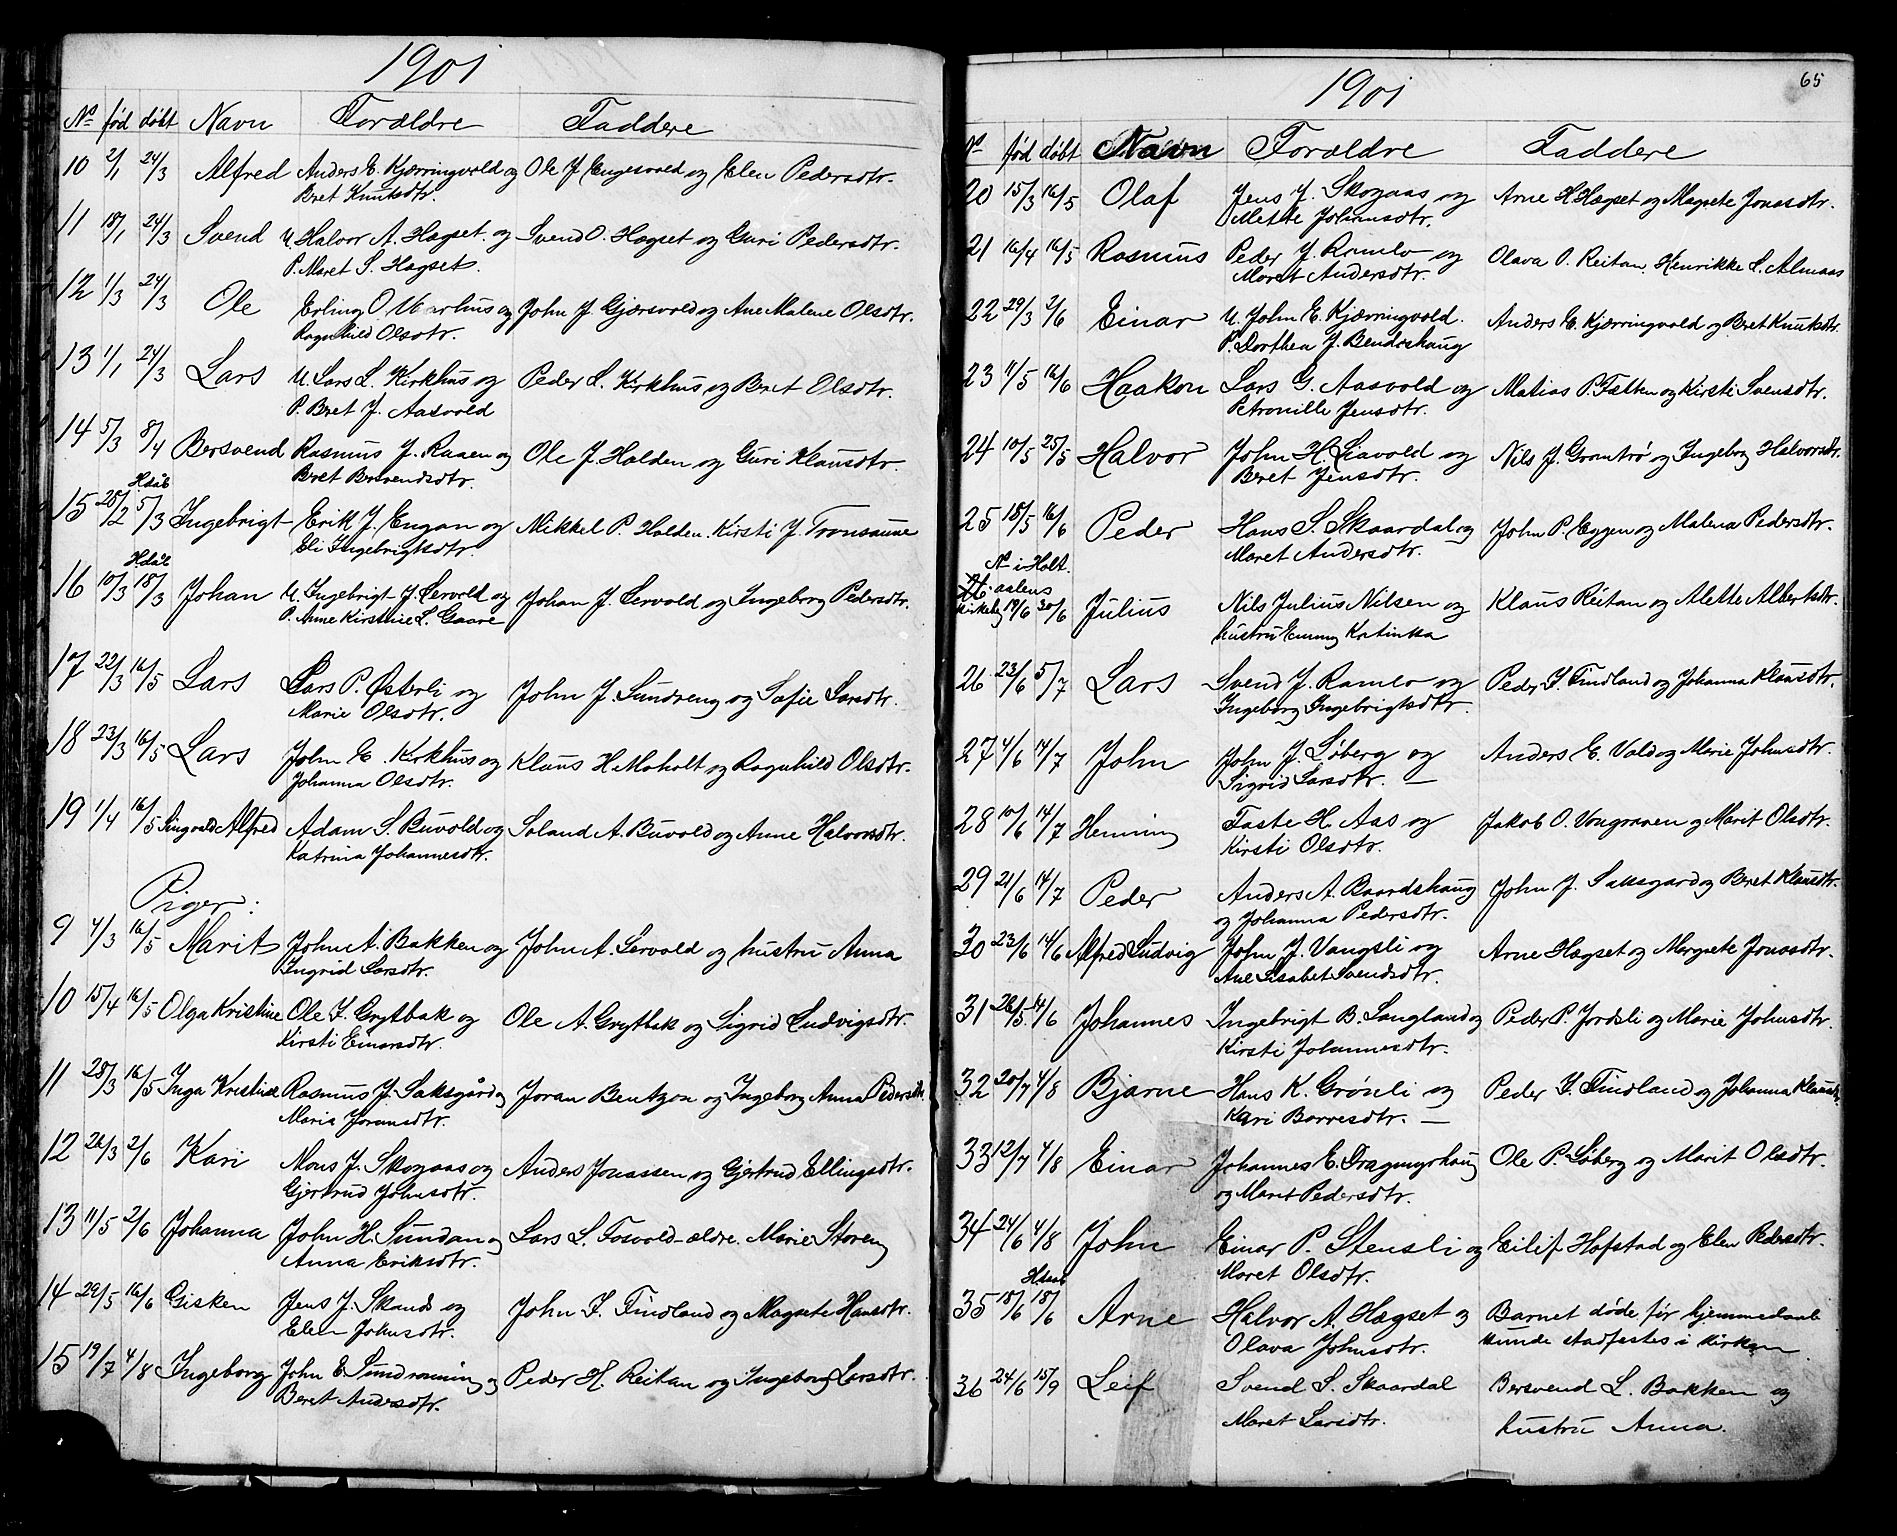 1901
No fød døbt Navn Forældre Faddere
10 2/1 24/3 Alfred Anders E. Kjærringvold og Ole J Engesvold og Elen Pedersdtr.
Bret Knutsdtr.
11 18/1 24/3 Svend U. Halvor A. Hagset. og Svend O. Hagset og Guri Pedersdtr.
P. Maret S. Hagset.
12 1/3 24/3 Ole Erling O. og John J. Gjærsvold og Ane Malene Olsdtr.
Ragnhild Olsdtr.
13 1/1 24/3 Lars U. Lars L. Kirkhus og Peder L. Kirkhus og Bret Olsdtr.
P. Bret J. Aasvold
14 5/3 8/4 Bersvend Rasmus J. Raaen og Ole J. Holden og Guri Klausdtr.
Bret Bersvendsdtr.
Hdåb
15 28/2 5/3 Ingebrigt Erik J. Engan og Mikkel P. Holden. Kirsti J. Tronsaune
Eli Ingebrigtsdtr.
Hdåb
16 10/3 18/3 Johan U. Ingebrigt J. Lervold og Johan J. Lervold og Ingeborg Pedersdtr.
P. Anne Kirstine L. Gaare
17 22/3 16/5 Lars Lars P. Østerli og John J. Sundreng og Sofie Larsdtr.
Marie Olsdtr.
18 23/3 16/5 Lars John E. Kirkhus og Klaus H. Moholt og Ragnhild Olsdtr.
Johanna Olsdtr.
19 1/4 16/5 Alfred Adam S. Buvold og A. Buvold og Anne Halvorsdtr.
Katrina Johannesdtr.
Piger:
9 4/3 16/5 Marit John A. Bakken og John A. Lervold og hustru Anna
Ingrid Larsdtr.
10 15/4 16/5 Olga Kristine Ole I. Grytbak og Ole A. Grytbak og Sigrid Ludvigsdtr.
Kirsti Einarsdtr.
11 28/3 16/5 Inga Kristine Rasmus J. Saksgård og Joran Bentzon og Ingeborg Anna Pedersdtr.
Maria Joransdtr.
12 26/3 2/6 Kari Mons J. Skogaas og Anders Jonassen og Gjertrud Ellingsdtr.
Gjertrud Johnsdtr.
13 11/5 2/6 Johanna John H. Sundan og Lars L. Fosvold - ældre. Marie Storeng
Anna Eriksdtr.
14 29/5 16/6 Gisken Jens J. Skands og John I. Tindland og Magrete Hansdtr.
Elen Johnsdtr.
15 19/7 4/8 Ingeborg John E. og Peder H. Reitan og Ingeborg Larsdtr.
Beret Andersdtr.
65
1901
No fød døbt Navn Forældre Faddere
20 15/3 16/5 Olaf Jens J. Skogaas og Arne H. Hagset og Magrete Jonasdtr.
Mette Johansdtr.
21 16/4 16/5 Rasmus Peder J. Ramlo og Olava O. Reitan, Henrikke L. Almaas
Maret Andersdtr.
22 29/3 2/6 Einar U. John E. Kjærringvold. Anders E. Kjærringvold og Bret Knutsdtr.
P. Dorthea J. Bendoshaug
23 11/5 16/6 Haakon Lars G. Aasvold og Matias P. Fatten og Kirsti Svensdtr.
Petronille Jensdtr.
24 10/5 25/5 Halvor John H. Liavold og Nils J. Grøntrø og Ingeborg Halvorsdtr.
Beret Jensdtr.
25 18/5 16/6 Peder Hans S. Skaardal og John P. Eggen og Malena Pedersdtr.
Maret Andersdtr.
No i Holt.
aalens
Kirkeb. 19/6 30/6 Julius Nils Julius Nilsen og Klaus Reitan og Alette Albertsdtr.
hustru Emmy Katinka
26 23/6 5/7 Lars Svend J. Ramlo og Peder I. Tindland og Johanna Klausdtr.
Ingeborg Ingebrigtsdtr.
27 4/6 14/7 John John J. Løberg og Anders E. Vold og Merie Johnsdtr.
Sigrid Larsdtr. —
28 10/6 14/7 Henning Taste H. Aas og Jakob O. Vongraven og Marit Olsdtr.
Kirsti Olsdtr.
29 21/6 14/7 Peder Anders A. Baardshaug John J. Saksgard og Beret Klausdtr.
og Johanna Pedersdtr.
30 23/6 14/6 Alfred Ludvig John J. Vangsli og Arne Hagset og Margrete Jonasdtr.
Ane Lisabet Svendsdtr.
31 26/5 14/6 Johannes Ingebrigt B. Langland og Peder P. Jordsli og Marie Johnsdtr.
Kirsti Johannesdtr.
32 20/7 4/8 Bjarne Hans K. Grønli og Peder I. Tindland og Johanna Klausdtr.
Kari Borresdtr. —
33 12/7 4/8 Einar Johannes E. Dragmyrhaug Ole P. Løberg og Marit Olsdtr.
og Marit Pedersdtr.
34 24/6 4/8 John Einar P. Stensli og Eilif Hofstad og Elen Pedersdtr.
Maret Olsdtr.
Hdaab
35 18/6 18/6 Arne Halvor A. Hagset og Barnet døde før hjemmedaab
Olava Johnsdtr. kunde stadfestes i kirken.
36 24/6 15/9 Leif Svend S. Skaardal Bersvend L. Bakken og
Maret Larsdtr. hustru Anna.